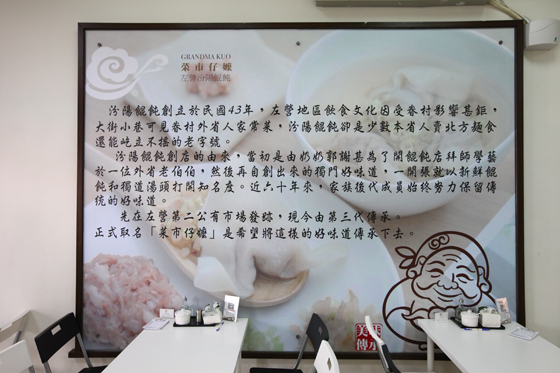 GRANDMA KUO
菜市仔嬤
左營汾陽餛飩
汾陽餛飩創立於民國43年，左營地區飲食文化因受眷村影響甚鉅，
大街小巷可見眷村外省人家常菜，汾陽餛飩卻是少數本省人賣北方麵食
還能屹立不搖的老字號。
汾陽餛飩創店的由來，當初是由奶奶郭謝甚為了開餛飩店拜師學藝
於一位外省老伯伯，然後再自創出來的獨門好味道，一開張就以新鮮餛
飩和獨道湯頭打開知名度。近六十年來，家族後代成員始終努力保留傳
統的好味道。
先在左營第二公有市場發跡，現今由第三代傳承。
正式取名「菜市仔嬤」是希望將這樣的好味道傳承下去。
美味
傳承